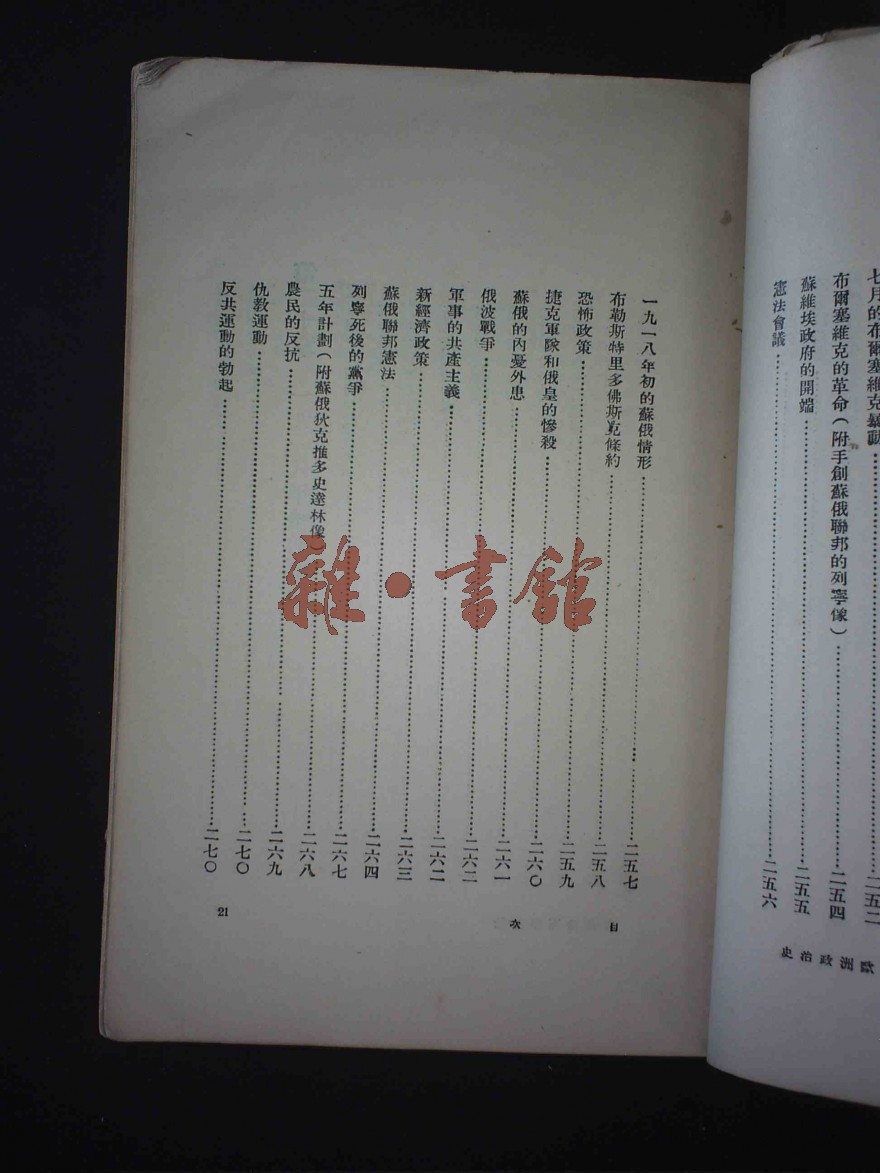 七月的布爾塞維克暴動……二五二
布爾塞維克的革命（附手創蘇俄聯邦的列寧像）……二五四
蘇維埃政府的開端……二五五
憲法會議……二五六
歐洲政治史
一九一八年初的蘇俄情形……二五七
布勒斯特里多佛斯克條約……二五八
恐怖政策……二五九
捷克軍隊和俄皇的慘殺……二六〇
蘇俄的內憂外患……二六一
俄波戰爭……二六二
軍事的共產主義……二六二
新經濟政策……二六三
蘇俄聯邦憲法……二六四
列寧死後的黨爭……二六七
五年計劃（附蘇俄狄克推多史達林像）……二六八
農民的反抗……二六九
仇教運動……二七〇
反共運動的勃起……二七〇
目次
21
雜·書館